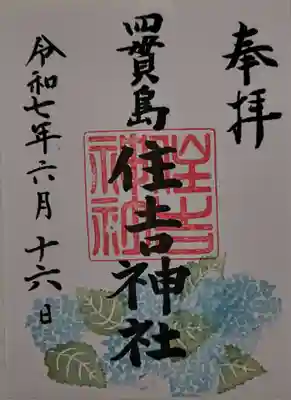 奉拝
四貫島
住吉神社
住吉神社
令和七年六月十六日